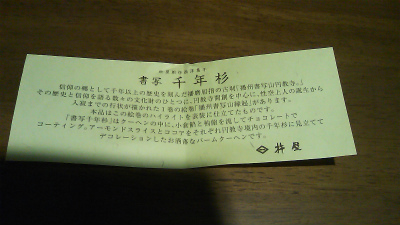 書写 千年杉
信仰の峰として千年以上の歴史を刻んだ播磨屈指の古刹「播州書写山円教寺」。
その歴史と信仰を語る数々の文化財のひとつに、円教寺開創を中心に、性空上人の誕生から
入寂までの行状が描かれた1巻の絵巻「播州書写山縁起」があります。
本品はこの絵巻のハイライトを衣装に仕立てたものです。
「書写千年杉」はクーヘンの中に、小倉餡と栴檀を流してチョコレートで
コーティング。アーモンドスライスとココアをそれぞれ円教寺境内の千年杉に見立てて
デコレーションしたお洒落なバームクーヘンです。
杵屋